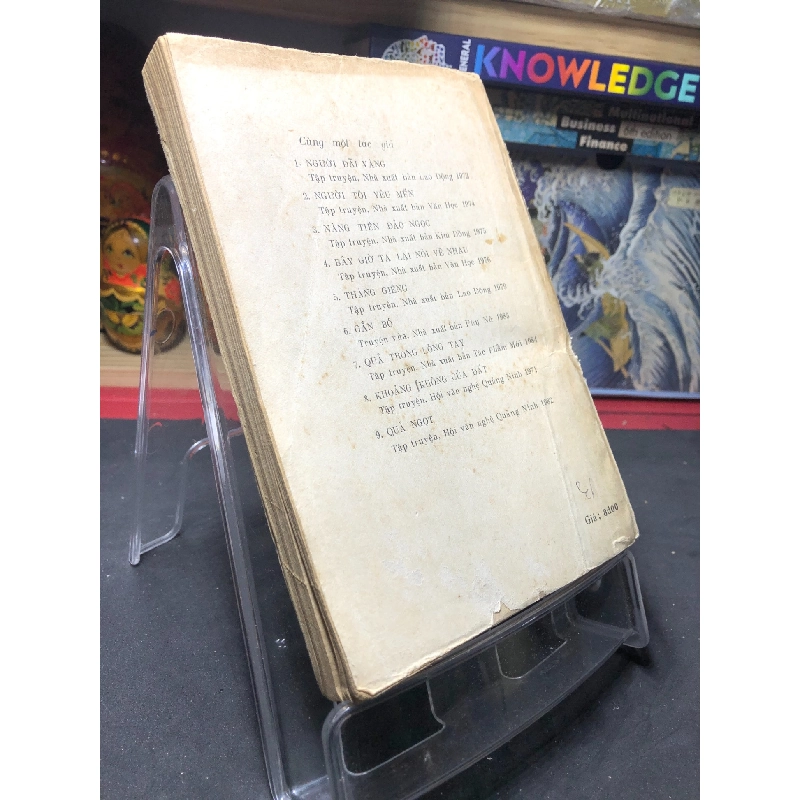 GENERAL
KNOWLEDGE
Multinational
Business
Finance
6th edition
Cùng một tác giả
1. NGƯỜI ĐÃI VÀNG
Tập truyện. Nhà xuất bản Lao Động 1973
2. NGƯỜI TÔI YÊU MẾN
Tập truyện. Nhà xuất bản Văn Học 1974
3. NÀNG TIÊN ĐẢO NGỌC
Tập truyện. Nhà xuất bản Kim Đồng 1975
4. BÂY GIỜ TA LẠI NÓI VỀ NHAU
Tập truyện. Nhà xuất bản Văn Học 1976
5. THÁNG GIÊNG
Tập truyện. Nhà xuất bản Lao Động 1979
6. GẮN BÓ
Truyện vừa. Nhà xuất bản Phụ Nữ
7. QUẢ TRONG LÒNG TAY
Tập truyện. Nhà xuất bản Tác Phẩm Mới 1984
8. KHOẢNG KHÔNG CỦA ĐẤT
Tập truyện. Hội văn nghệ Quảng Ninh 1971
9. QUẢ NGỌT
Tập truyện. Hội văn nghệ Quảng Ninh 1982
Giá: